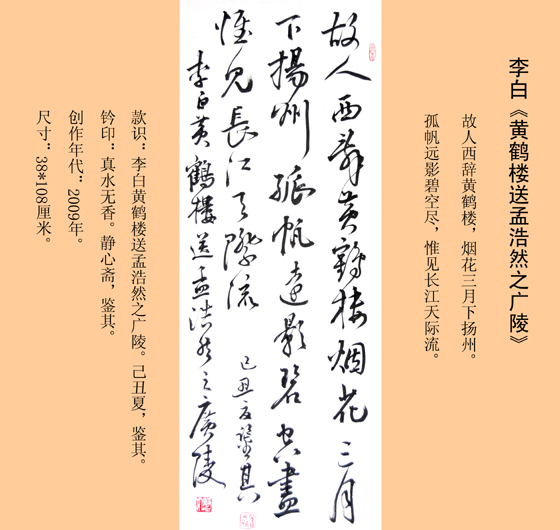 李白《黄鹤楼送孟浩然之广陵》
故人西辞黄鹤楼，烟花三月下扬州。
孤帆远影碧空尽，惟见长江天际流。
故人西辞黄鹤楼烟花三月
下揚州孤帆遠影碧空盡
惟見長江天際流
己丑夏鉴其
李白黄鶴樓送孟浩然之廣陵
款识：李白黄鹤楼送孟浩然之广陵。己丑夏，鉴其。
钤印：真水无香。静心斋，鉴其。
创作年代：2009年。
尺寸：38*108厘米。